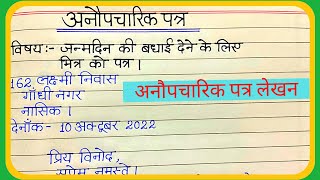 अनौपचारिक पत्र
विषय:- जन्मदिन की बधाई देने के लिए
मित्र को पत्र ।
162 लक्ष्मी निवास
गाँधी नगर
नासिक ।
देनाँक- 10 अक्टूबर 2022
प्रिय विनोद,
सप्रेम नमस्ते ।
अनौपचारिक पत्र लेखन